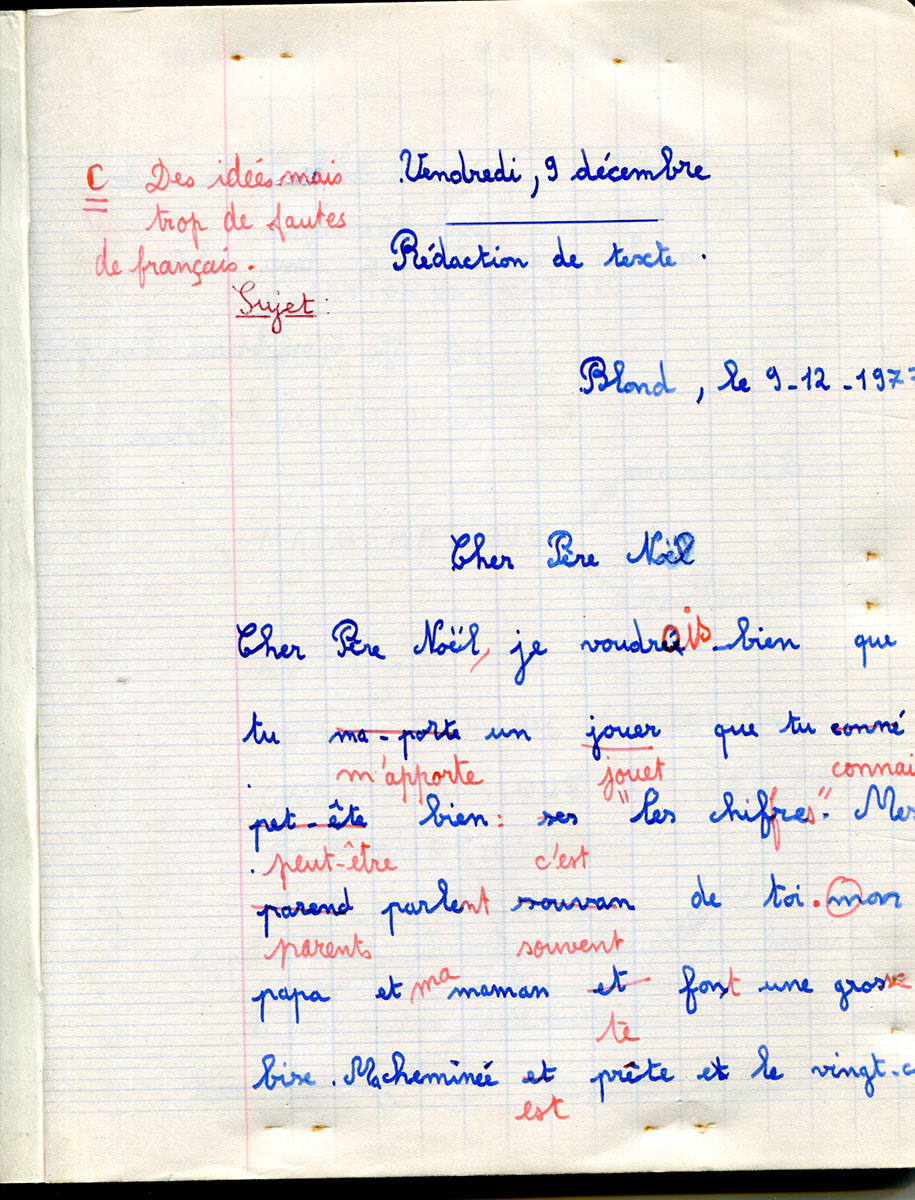 C Des idées mais
trop de fautes
de français.
Vendredi, 9 décembre
Rédaction de texte.
Sujet:
Blond, le 9-12-1977
Cher Père Noël
Cher Père Noël, je voudrais bien que
tu ma-porte un jouer que tu conné
m'apporte jouet connai
pet-ête bien: ses "les chiffres". Mes
peut-être c'est
parend parlent souvan de toi. mon
parents souvent
papa et ma maman et font une grosse
te
bise. Ma cheminée et prête et le vingt-c
est